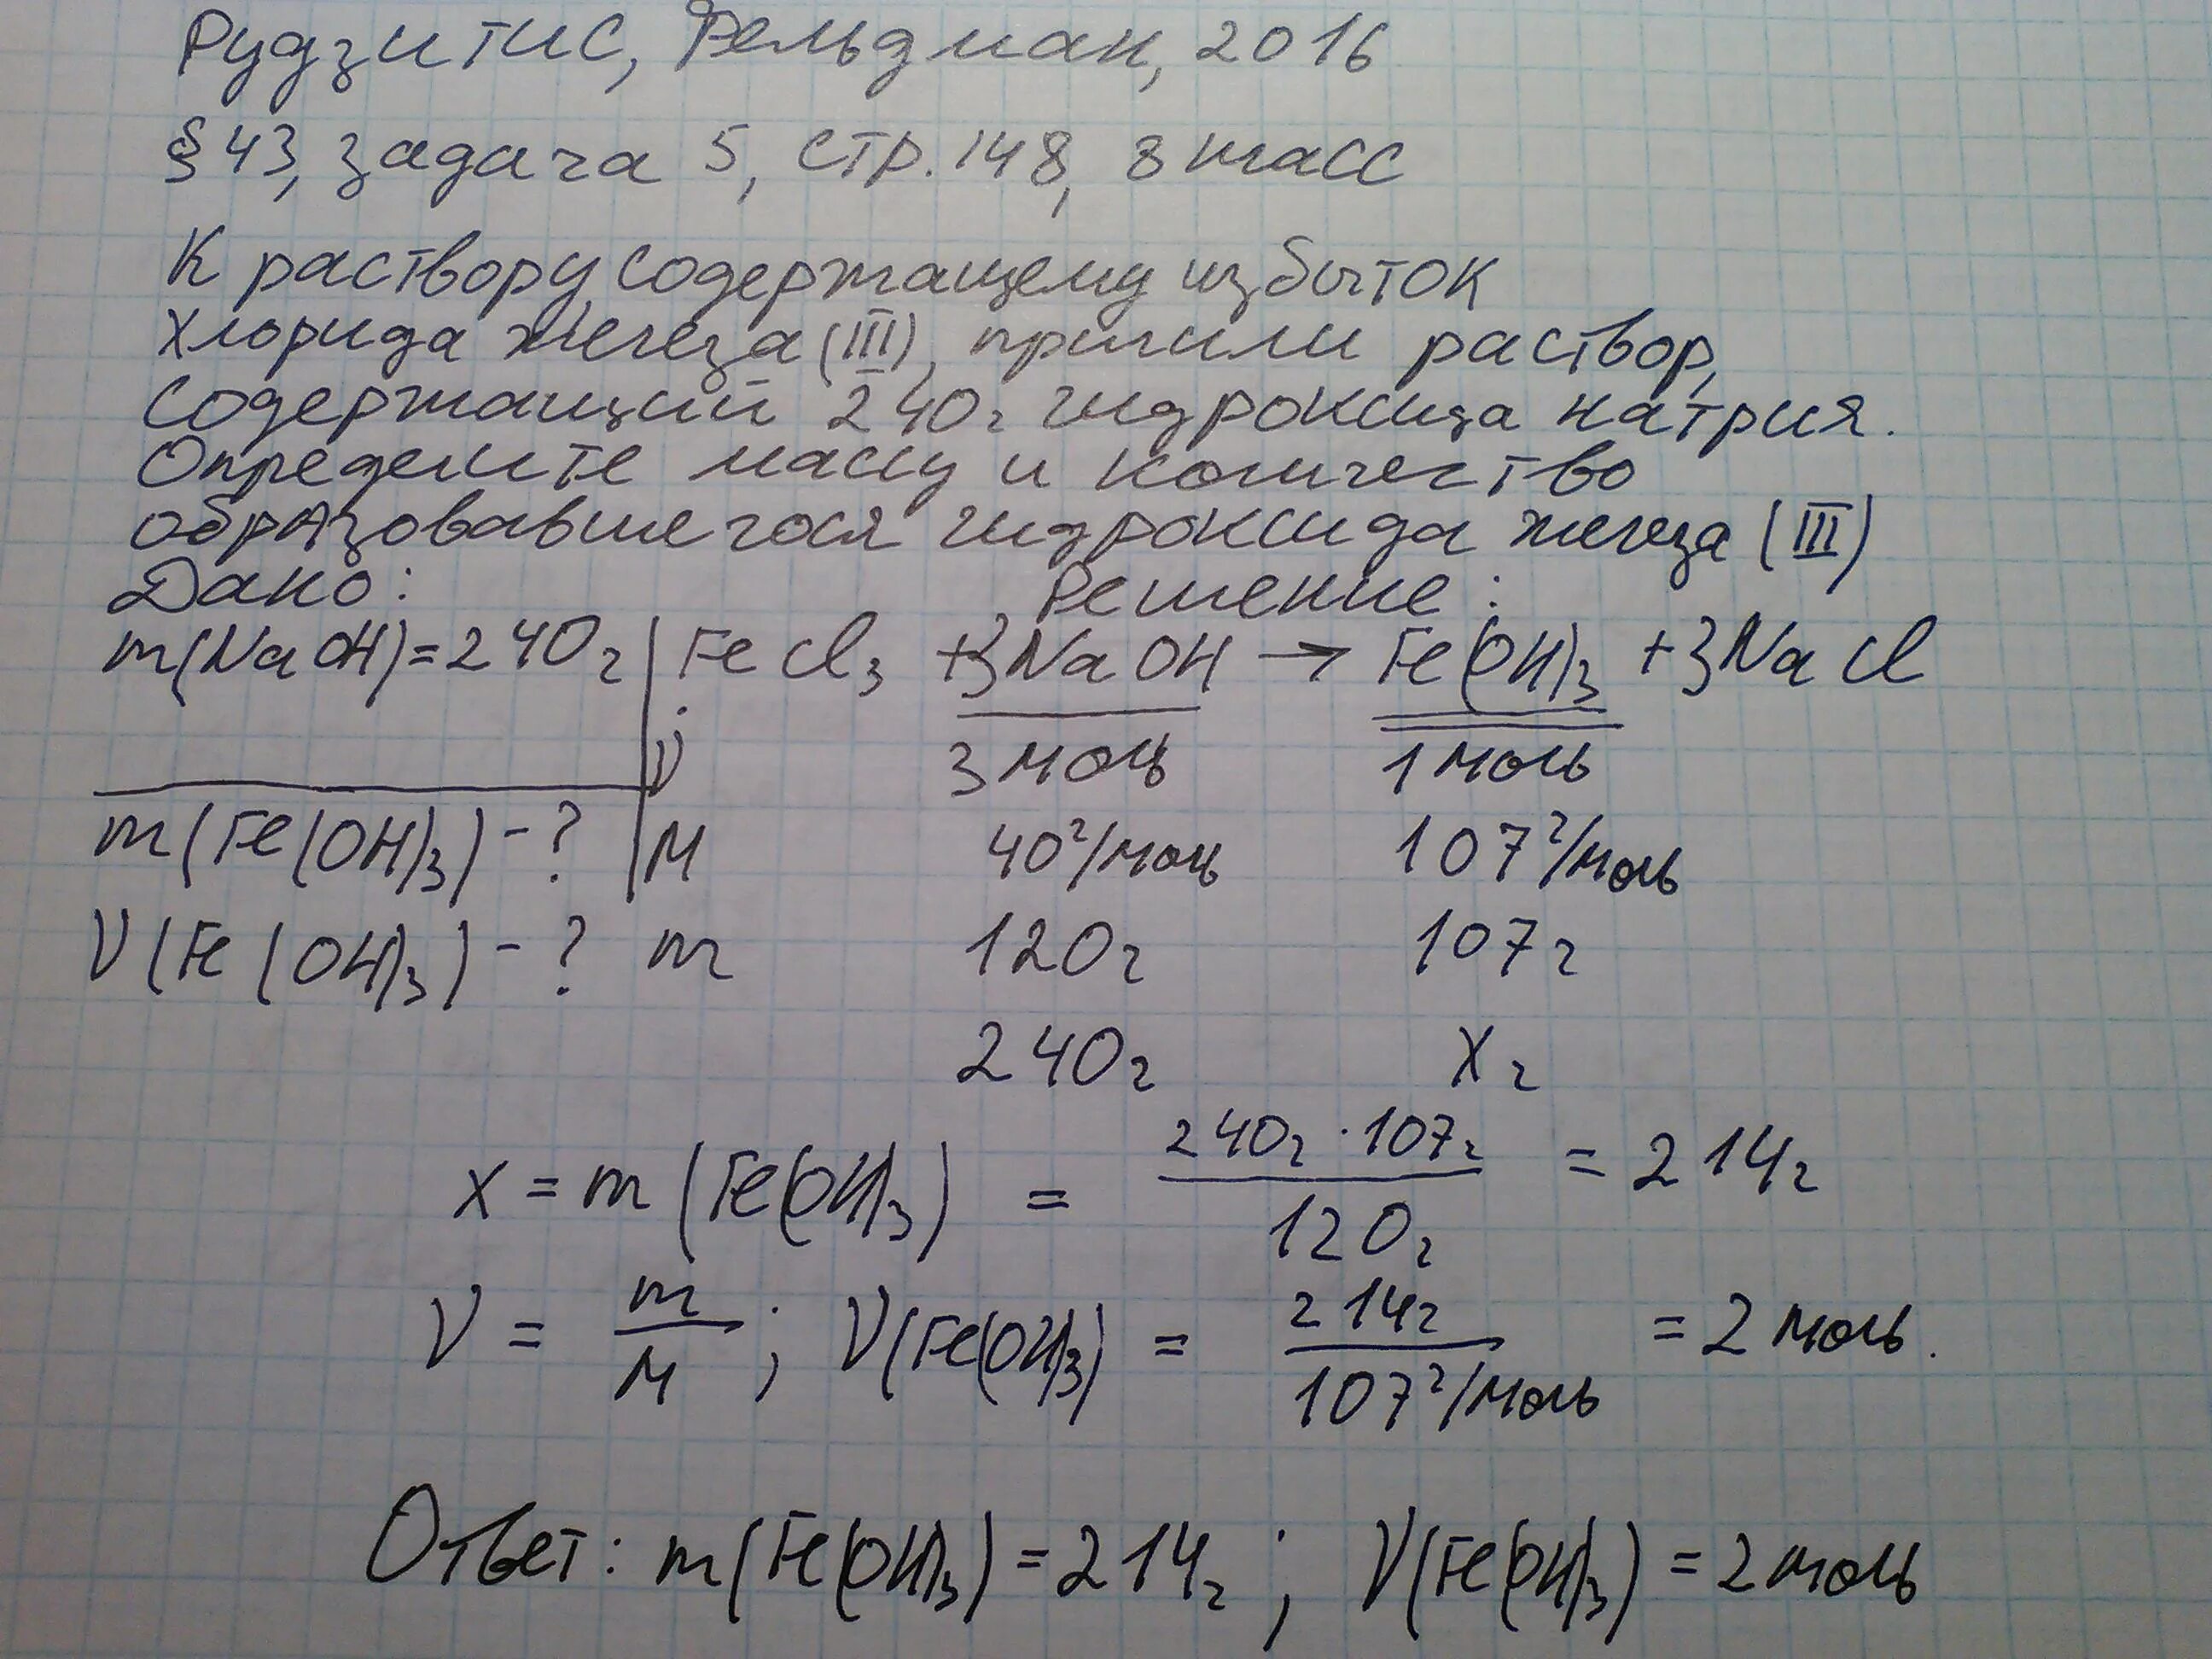 Рудзитис, Фельдман, 2016
§43, задача 5, стр. 148, 8 класс
К раствору, содержащему избыток
хлорида железа (III), прилили раствор,
содержащий 240г гидроксида натрия.
Определите массу и количество
образовавшегося гидроксида железа (III)
Дано: Решение:
m(NaOH)=240г FeCl₃ +3NaOH → Fe(OH)₃ +3NaCl
ν: 3моль 1моль
m(Fe(OH)₃)-? M 40г/моль 107г/моль
ν(Fe(OH)₃)-? m 120г 107г
240г Xг
x = m(Fe(OH)₃) = 240г·107г/120г = 214г
ν = m/M; ν(Fe(OH)₃) = 214г/107г/моль = 2моль.
Ответ: m(Fe(OH)₃)=214г; ν(Fe(OH)₃)=2моль